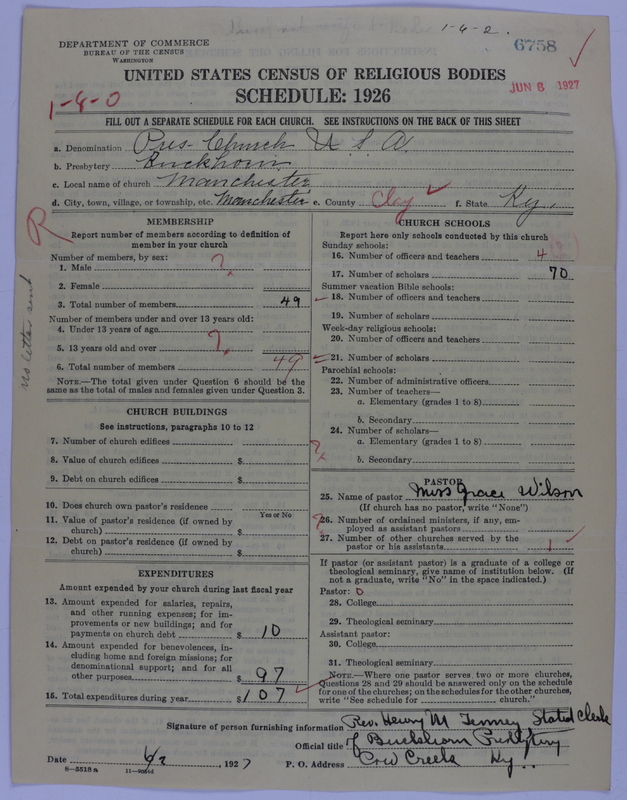 1-6-2.
DEPARTMENT OF COMMERCE
BUREAU OF THE CENSUS
WASHINGTON
6758
JUN 6 1927
UNITED STATES CENSUS OF RELIGIOUS BODIES
SCHEDULE: 1926
1-8-0
FILL OUT A SEPARATE SCHEDULE FOR EACH CHURCH. SEE INSTRUCTIONS ON THE BACK OF THIS SHEET
a. Denomination Pres- Church U S A.
b. Presbytery Buckhorn
c. Local name of church Manchester
d. City, town, village, or township, etc. Manchester e. County Clay f. State Ky.
R
no letter sent
MEMBERSHIP
Report number of members according to definition of member in your church
Number of members, by sex:
1. Male ?
2. Female
3. Total number of members 49
Number of members under and over 13 years old:
4. Under 13 years of age
5. 13 years old and over ?
6. Total number of members 49
NOTE.—The total given under Question 6 should be the
same as the total of males and females given under Question 3.
CHURCH BUILDINGS
See instructions, paragraphs 10 to 12
7. Number of church edifices
8. Value of church edifices $
9. Debt on church edifices $
10. Does church own pastor's residence
Yes or No
11. Value of pastor's residence (if owned by
church) $
12. Debt on pastor's residence (if owned by
church) $
EXPENDITURES
Amount expended by your church during last fiscal year
13. Amount expended for salaries, repairs,
and other running expenses; for im-
provements or new buildings; and for
payments on church debt $ 10
14. Amount expended for benevolences, in-
cluding home and foreign missions; for
denominational support; and for all
other purposes $ 97
15. Total expenditures during year $ 107
CHURCH SCHOOLS
Report here only schools conducted by this church
Sunday schools:
16. Number of officers and teachers 4
17. Number of scholars 70
Summer vacation Bible schools:
18. Number of officers and teachers
19. Number of scholars
Week-day religious schools:
20. Number of officers and teachers
21. Number of scholars
Parochial schools:
22. Number of administrative officers
23. Number of teachers—
a. Elementary (grades 1 to 8)
b. Secondary
24. Number of scholars—
a. Elementary (grades 1 to 8)
b. Secondary
PASTOR
25. Name of pastor Miss Grace Wilson
(If church has no pastor, write "None")
26. Number of ordained ministers, if any, em-
ployed as assistant pastors
27. Number of other churches served by the
pastor or his assistants 1
If pastor (or assistant pastor) is a graduate of a college or
theological seminary, give name of institution below. (If
not a graduate, write "No" in the space indicated.)
Pastor: 0
28. College
29. Theological seminary
Assistant pastor:
30. College
31. Theological seminary
NOTE.—Where one pastor serves two or more churches,
Questions 28 and 29 should be answered only on the schedule
for one of the churches; on the schedules for the other churches,
write "See schedule for church."
Signature of person furnishing information Rev. Henry M Tenney Stated Clerk
Official title of Buckhorn Presbytery
Date 6/2, 1927 P. O. Address Cow Creek Ky.
8—5518a 11—9056d